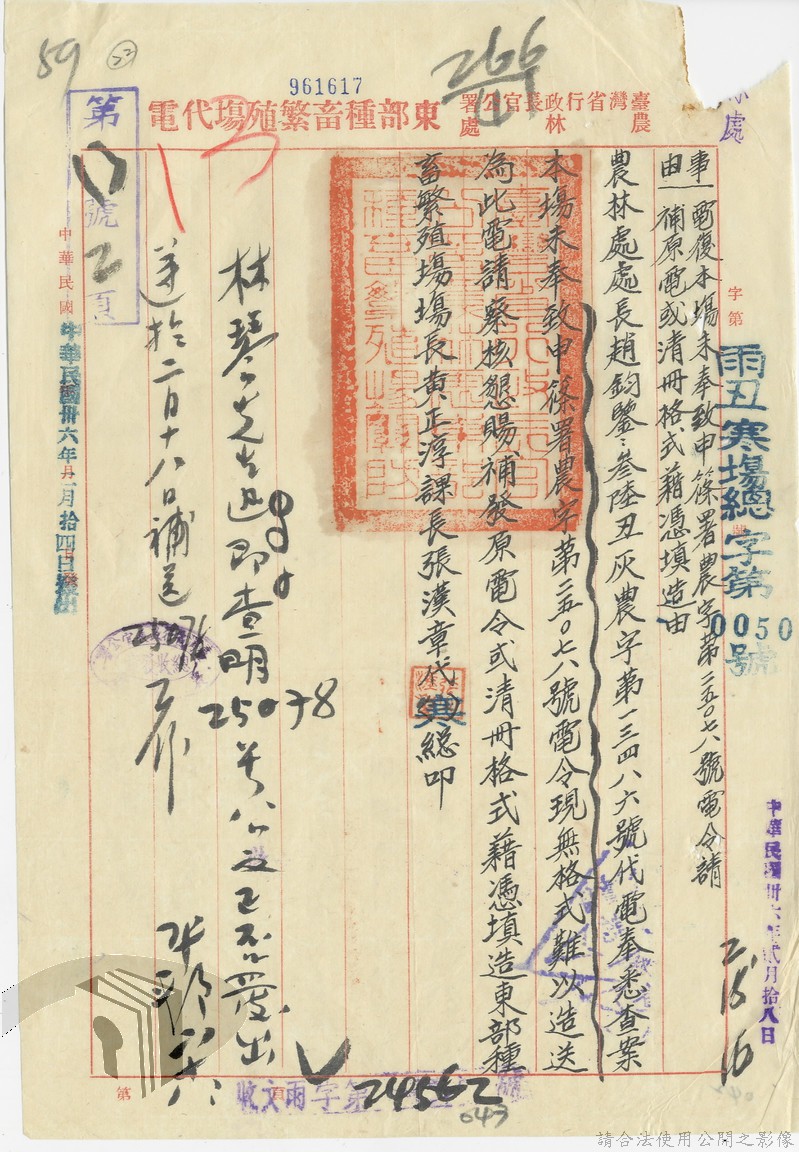 59
22
266
961617
臺灣省行政長官公署農林處
東部種畜繁殖場代電
處
字第
雨丑寒場總字第
0050
號
事由
電復本場未奉致申篠署農字第二五〇七八號電令請
補原電或清冊格式藉憑填造由
農林處處長趙鈞鑒：叁陸丑灰農字第一三四八六號代電奉悉查案
本場未奉致申篠署農字第二五〇七八號電令現無格式難以造送
為此電請察核懇賜補發原電令或清冊格式藉憑填造東部種
畜繁殖場場長黃正淳課長張漢章代寒總叩
林琴先生迅即查明
25078
號公文已否發出
遂於二月十八日補送
第
號
2頁
中華民國
中華民國卅六年二月拾四日發出
中華民國卅六年貳月拾八日
2.18
16
收文雨字第
號
24562
643
第
頁
請合法使用公開之影像